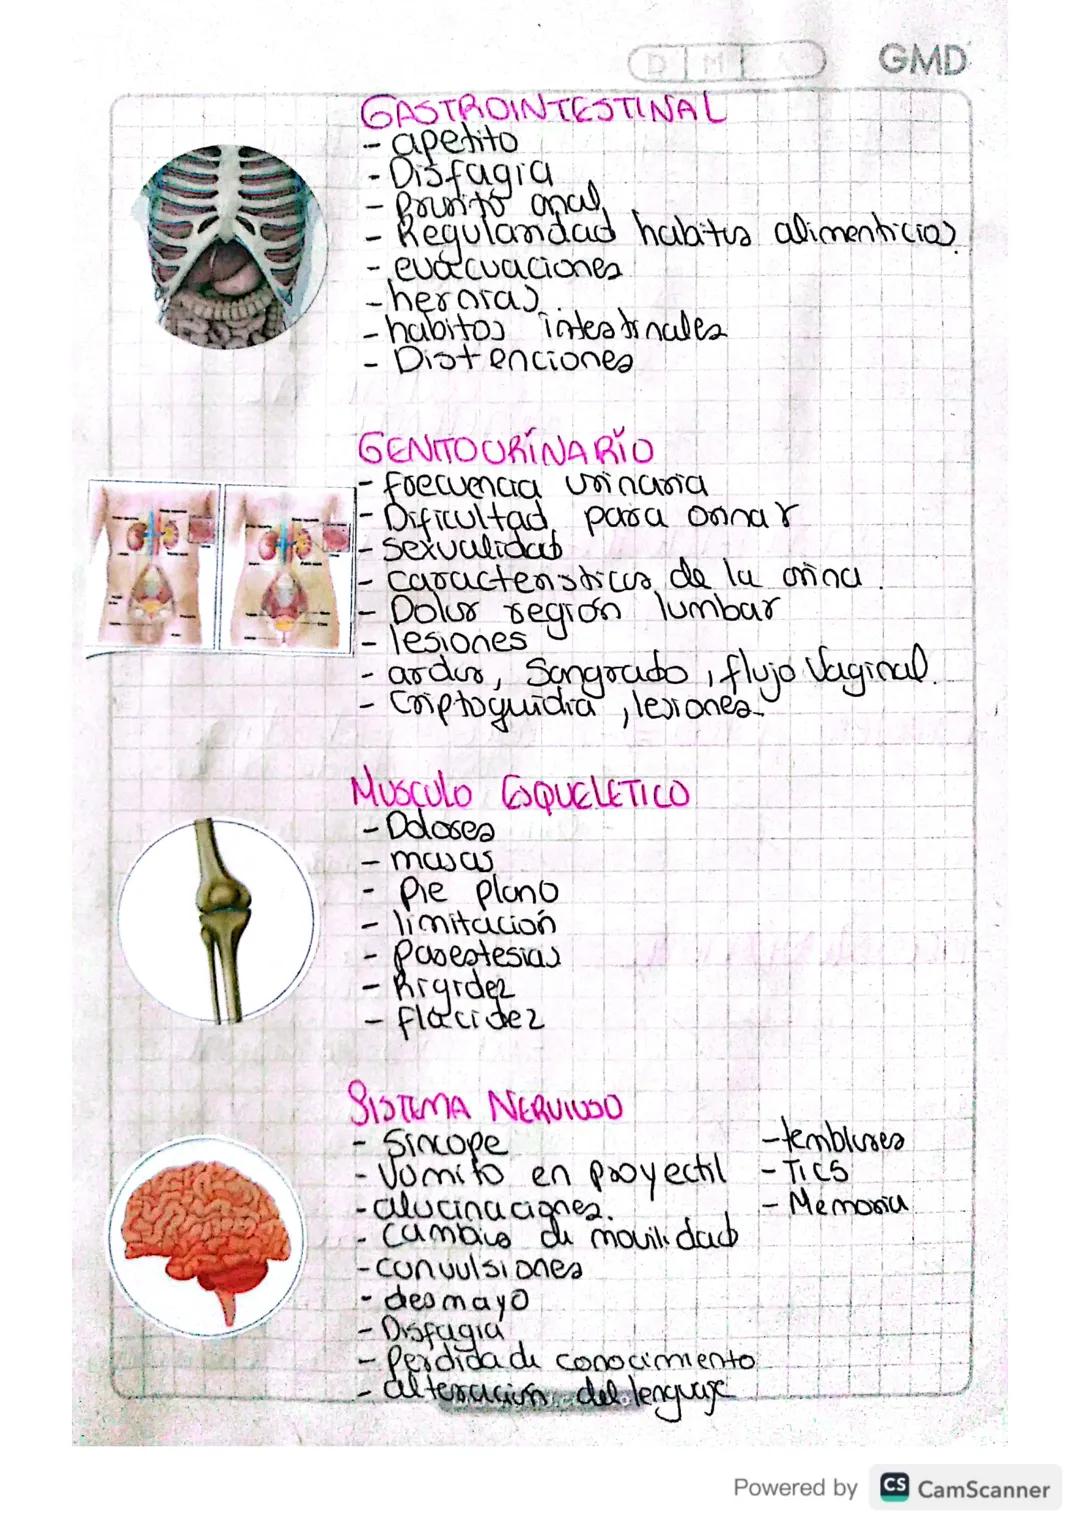 D M
GMD
GASTROINTESTINAL
- apetito
- Disfagia
- Prurito anal
- Regularidad habitus alimenticios
- evacuaciones
- hernias
- habitos intestinales
- Distenciones
GENITOURÍNARÍO
- frecuencia urinaria
- Dificultad para orinar
- sexualidad
- caracteristicas de la orina.
- Dolor región lumbar
- lesiones
- ardor, Sangrado, flujo Vaginal.
- Criptoquidia, lesiones.
MUSCULO ESQUELETICO
- Dolores
- masas
- pie plano
- limitación
- Parestesias
- Rigidez
- flacidez
SISTEMA NERVIOSO
- Sincope
- Vomito en proyectil
- alucinaciones.
- cambio de movilidad
- convulsiones
- desmayo
- Disfagia
- Perdida de conocimiento
- alteración del lenguaje
- temblores
- TICS
- Memoria
Powered by CS CamScanner